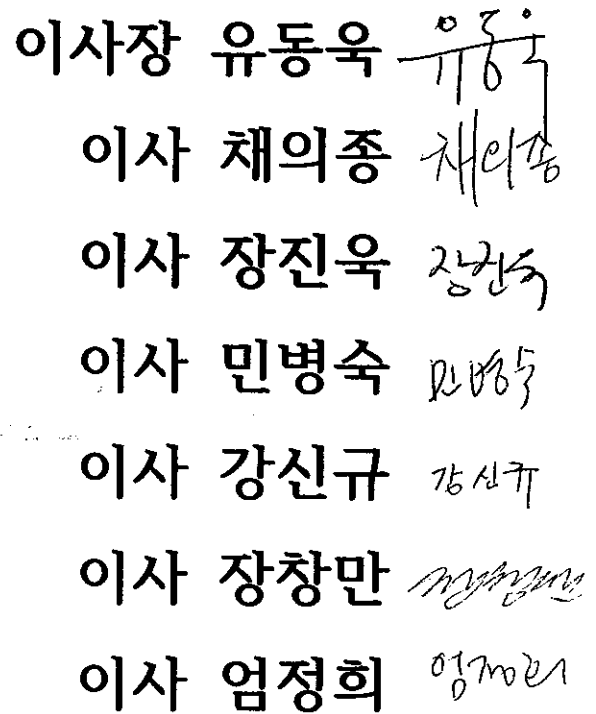 이사장 유동욱 유동욱
이사 채의종 채의종
이사 장진욱 장진욱
이사 민병숙 민병숙
이사 강신규 강신규
이사 장창만
이사 엄정희 엄정희